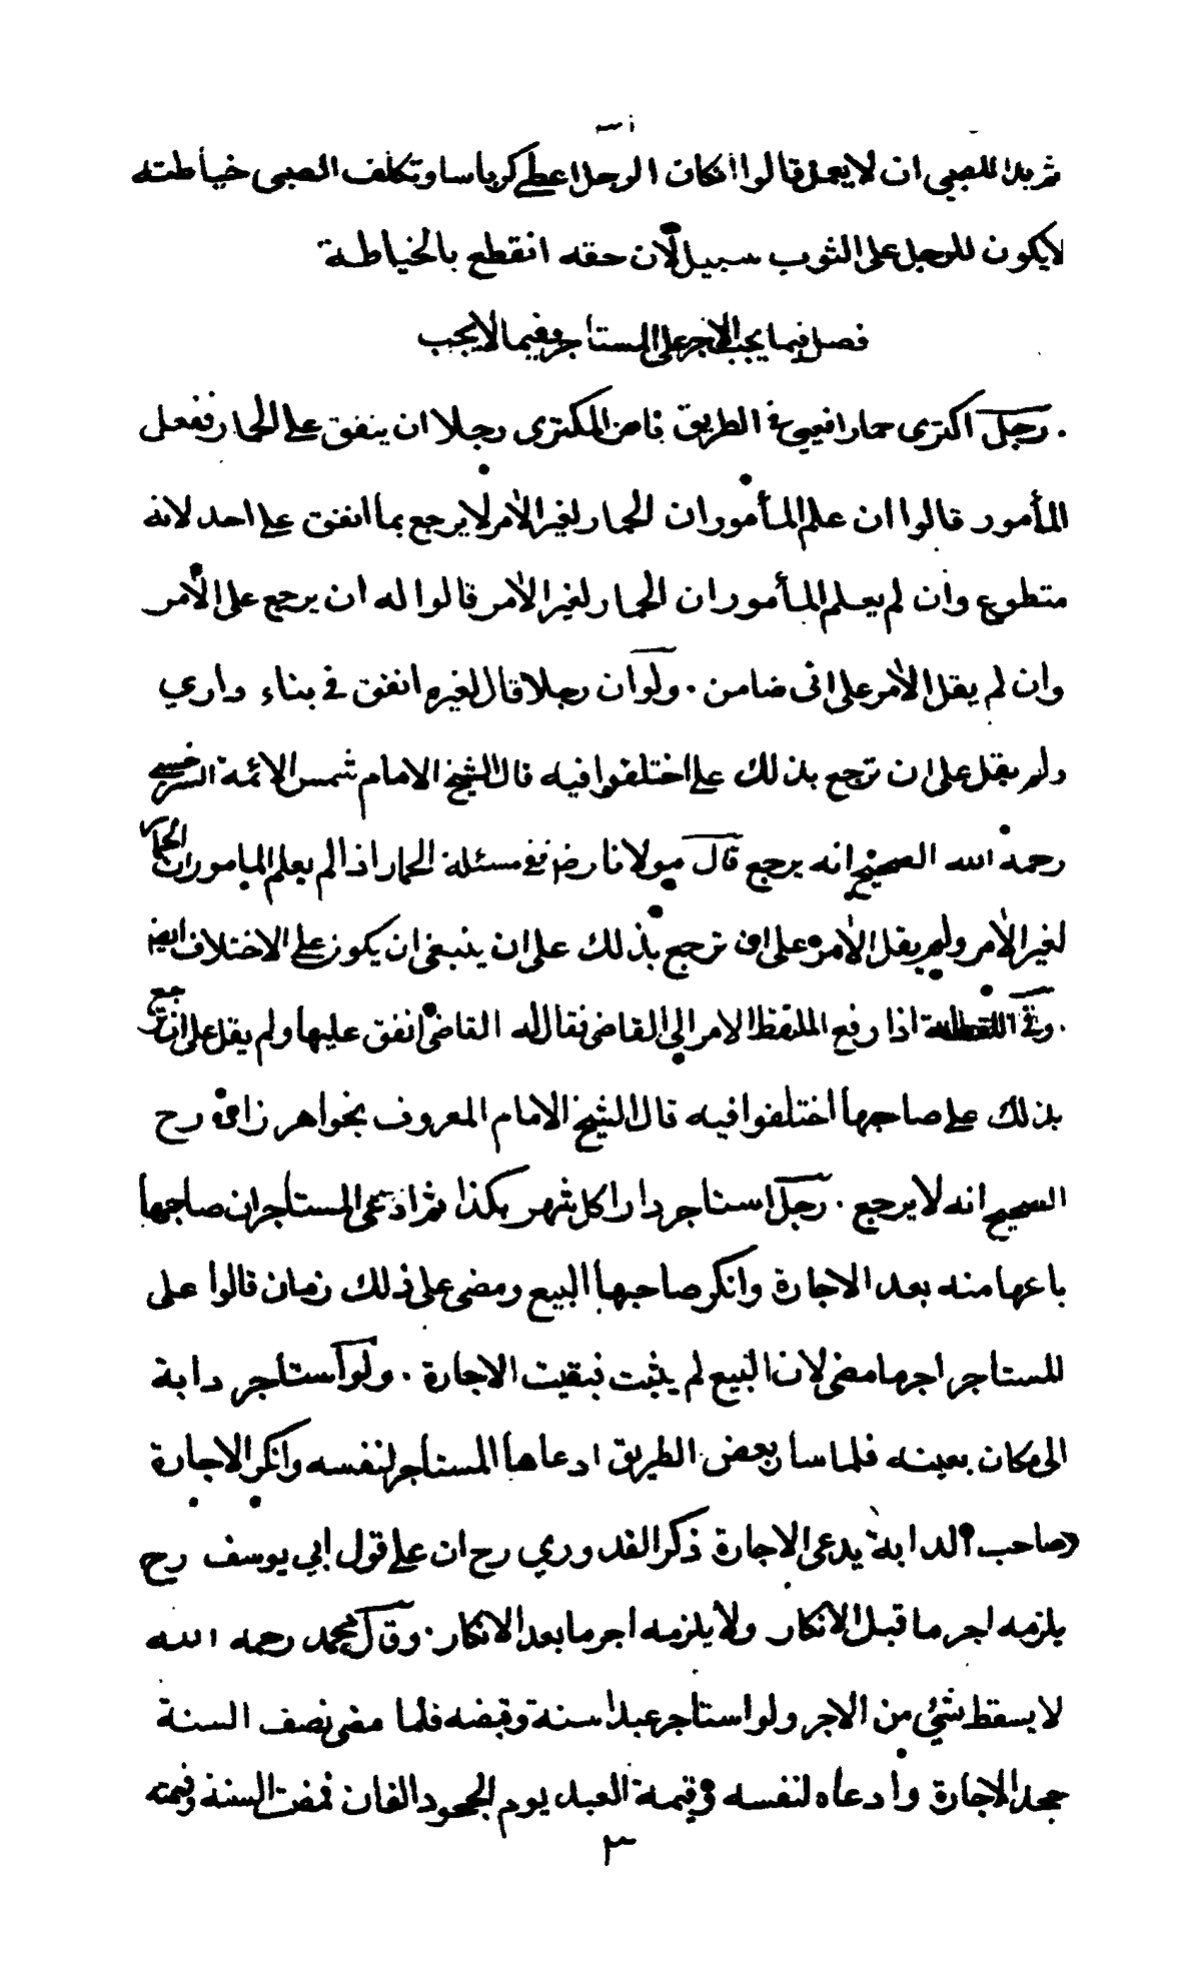 ثم بدا للصبي ان لا يعمل قالوا ان كان الرجل اعطي كرباسا وتكلف الصبي خياطته
لا يكون للرجل على الثوب سبيل لان حقه انقطع بالخياطة
فصل فيما يجب الاجر على المستاجر وفيما لا يجب
. رجل اكترى حمارا فعيي في الطريق فامر المكترى رجلا ان ينفق على الحمار ففعل
المأمور قالوا ان علم المأمور ان الحمار لغير الآمر لا يرجع بما انفق على احد لانه
متطوع وان لم يعلم المأمور ان الحمار لغير الآمر قالوا له ان يرجع على الآمر
وان لم يقل الآمر على انى ضامن . ولو ان رجلا قال لغيره انفق في بناء داري
ولم يقل على ان ترجع بذلك على اختلفوا فيه قال الشيخ الامام شمس الائمة السرخسي
رحمه الله الصحيح انه يرجع قال مولانا رضي ففي مسئلة الحمار اذا لم يعلم المامور ان الحمار
لغير الآمر ولم يقل الآمر على ان ترجع بذلك على ان ينبغى ان يكون على الاختلاف ايضا
. وفي اللقطة اذا رفع الملتقط الامر الى القاضى فقال له القاضى انفق عليها ولم يقل على ان ترجع
بذلك على صاحبها اختلفوا فيه قال الشيخ الامام المعروف بخواهر زاده رح
الصحيح انه لا يرجع . رجل استاجر دارا كل شهر بكذا ثم ادعى المستاجر ان صاحبها
باعها منه بعد الاجارة وانكر صاحبها البيع ومضى على ذلك زمان قالوا على
المستاجر اجر ما مضى لان البيع لم يثبت فبقيت الاجارة . ولو استاجر دابة
الى مكان بعينه فلما سار بعض الطريق ادعاها المستاجر لنفسه وانكر الاجارة
وصاحب الدابة يدعى الاجارة ذكر القدوري رح ان على قول ابي يوسف رح
يلزمه اجر ما قبل الانكار ولا يلزمه اجر ما بعد الانكار . وقال محمد رحمه الله
لا يسقط شئ من الاجر ولو استاجر عبدا سنة وقبضه فلما مضى نصف السنة
جحد الاجارة وادعاه لنفسه وقيمة العبد يوم الجحود الفان فمضت السنة وقيمته
٣